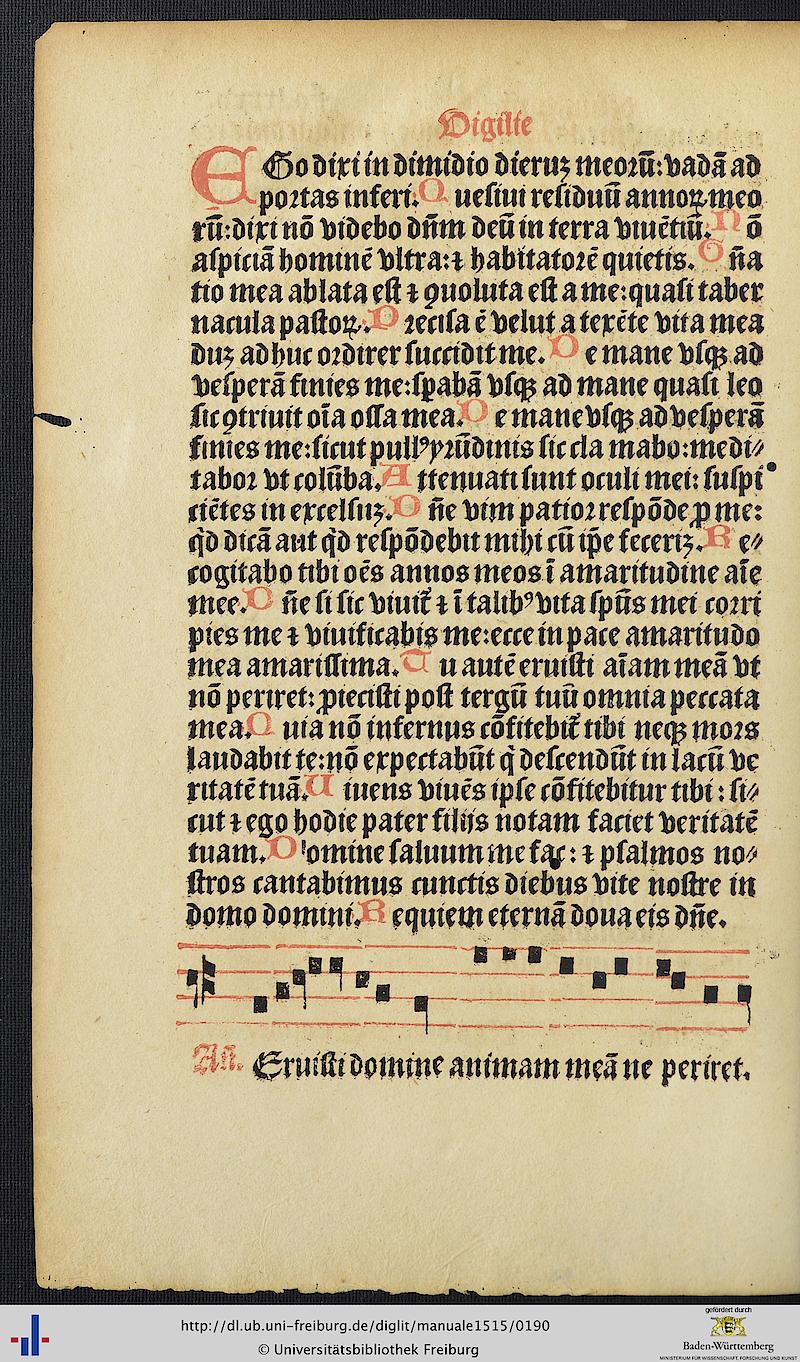 Vigilie
EGo dixi in dimidio dieruꝫ meoꝛū: vadā ad
poꝛtas inferi. Queſiui reſiduū annoꝝ meo
rū: dixi nō videbo dn̄m deū in terra viuētiū. Nō
aſpiciā hominē vltra: ⁊ habitatoꝛē quietis. Gn̄a
tio mea ablata eſt ⁊ ꝯuoluta eſt a me: quaſi taber
nacula paſtoꝝ. Pꝛeciſa ē velut a texēte vita mea
duꝫ ad huc oꝛdirer ſuccidit me. De mane vſqꝫ ad
veſperā finies me: ſpabā vſqꝫ ad mane quaſi leo
ſic ꝯtriuit oīa oſſa mea. De mane vſqꝫ ad veſperā
finies me: ſicut pullꝰ yrūdinis ſic cla mabo: medi⸗
taboꝛ vt colūba. Attenuati ſunt oculi mei: ſuſpi
ciētes in excelſuꝫ. Dn̄e vim patioꝛ reſpōde ꝓ me:
qd̄ dicā aut qd̄ reſpōdebit mihi cū ip̄e feceriꝫ. Re⸗
cogitabo tibi oēs annos meos ī amaritudine aīe
mee. Dn̄e ſi ſic viuit᷑ ⁊ ī talibꝰ vita ſpūs mei coꝛri
pies me ⁊ viuificabis me: ecce in pace amaritudo
mea amariſſima. Tu autē eruiſti aīam meā vt
nō periret: ꝓieciſti poſt tergū tuū omnia peccata
mea. Quia nō infernus cōfitebit᷑ tibi neqꝫ moꝛs
laudabit te: nō expectabūt q̇ deſcendūt in lacū ve
ritatē tuā. Uiuens viuēs ipſe cōfitebitur tibi: ſi⸗
cut ⁊ ego hodie pater filijs notam faciet veritatē
tuam. Domine ſaluum me fac: ⁊ pſalmos no⸗
ſtros cantabimus cunctis diebus vite noſtre in
domo domini. Requiem eternā dona eis dn̄e.
An̄. Eruiſti domine animam meā ne periret.
http://dl.ub.uni-freiburg.de/diglit/manuale1515/0190
© Universitätsbibliothek Freiburg
gefördert durch
Baden-Württemberg
MINISTERIUM FÜR WISSENSCHAFT, FORSCHUNG UND KUNST